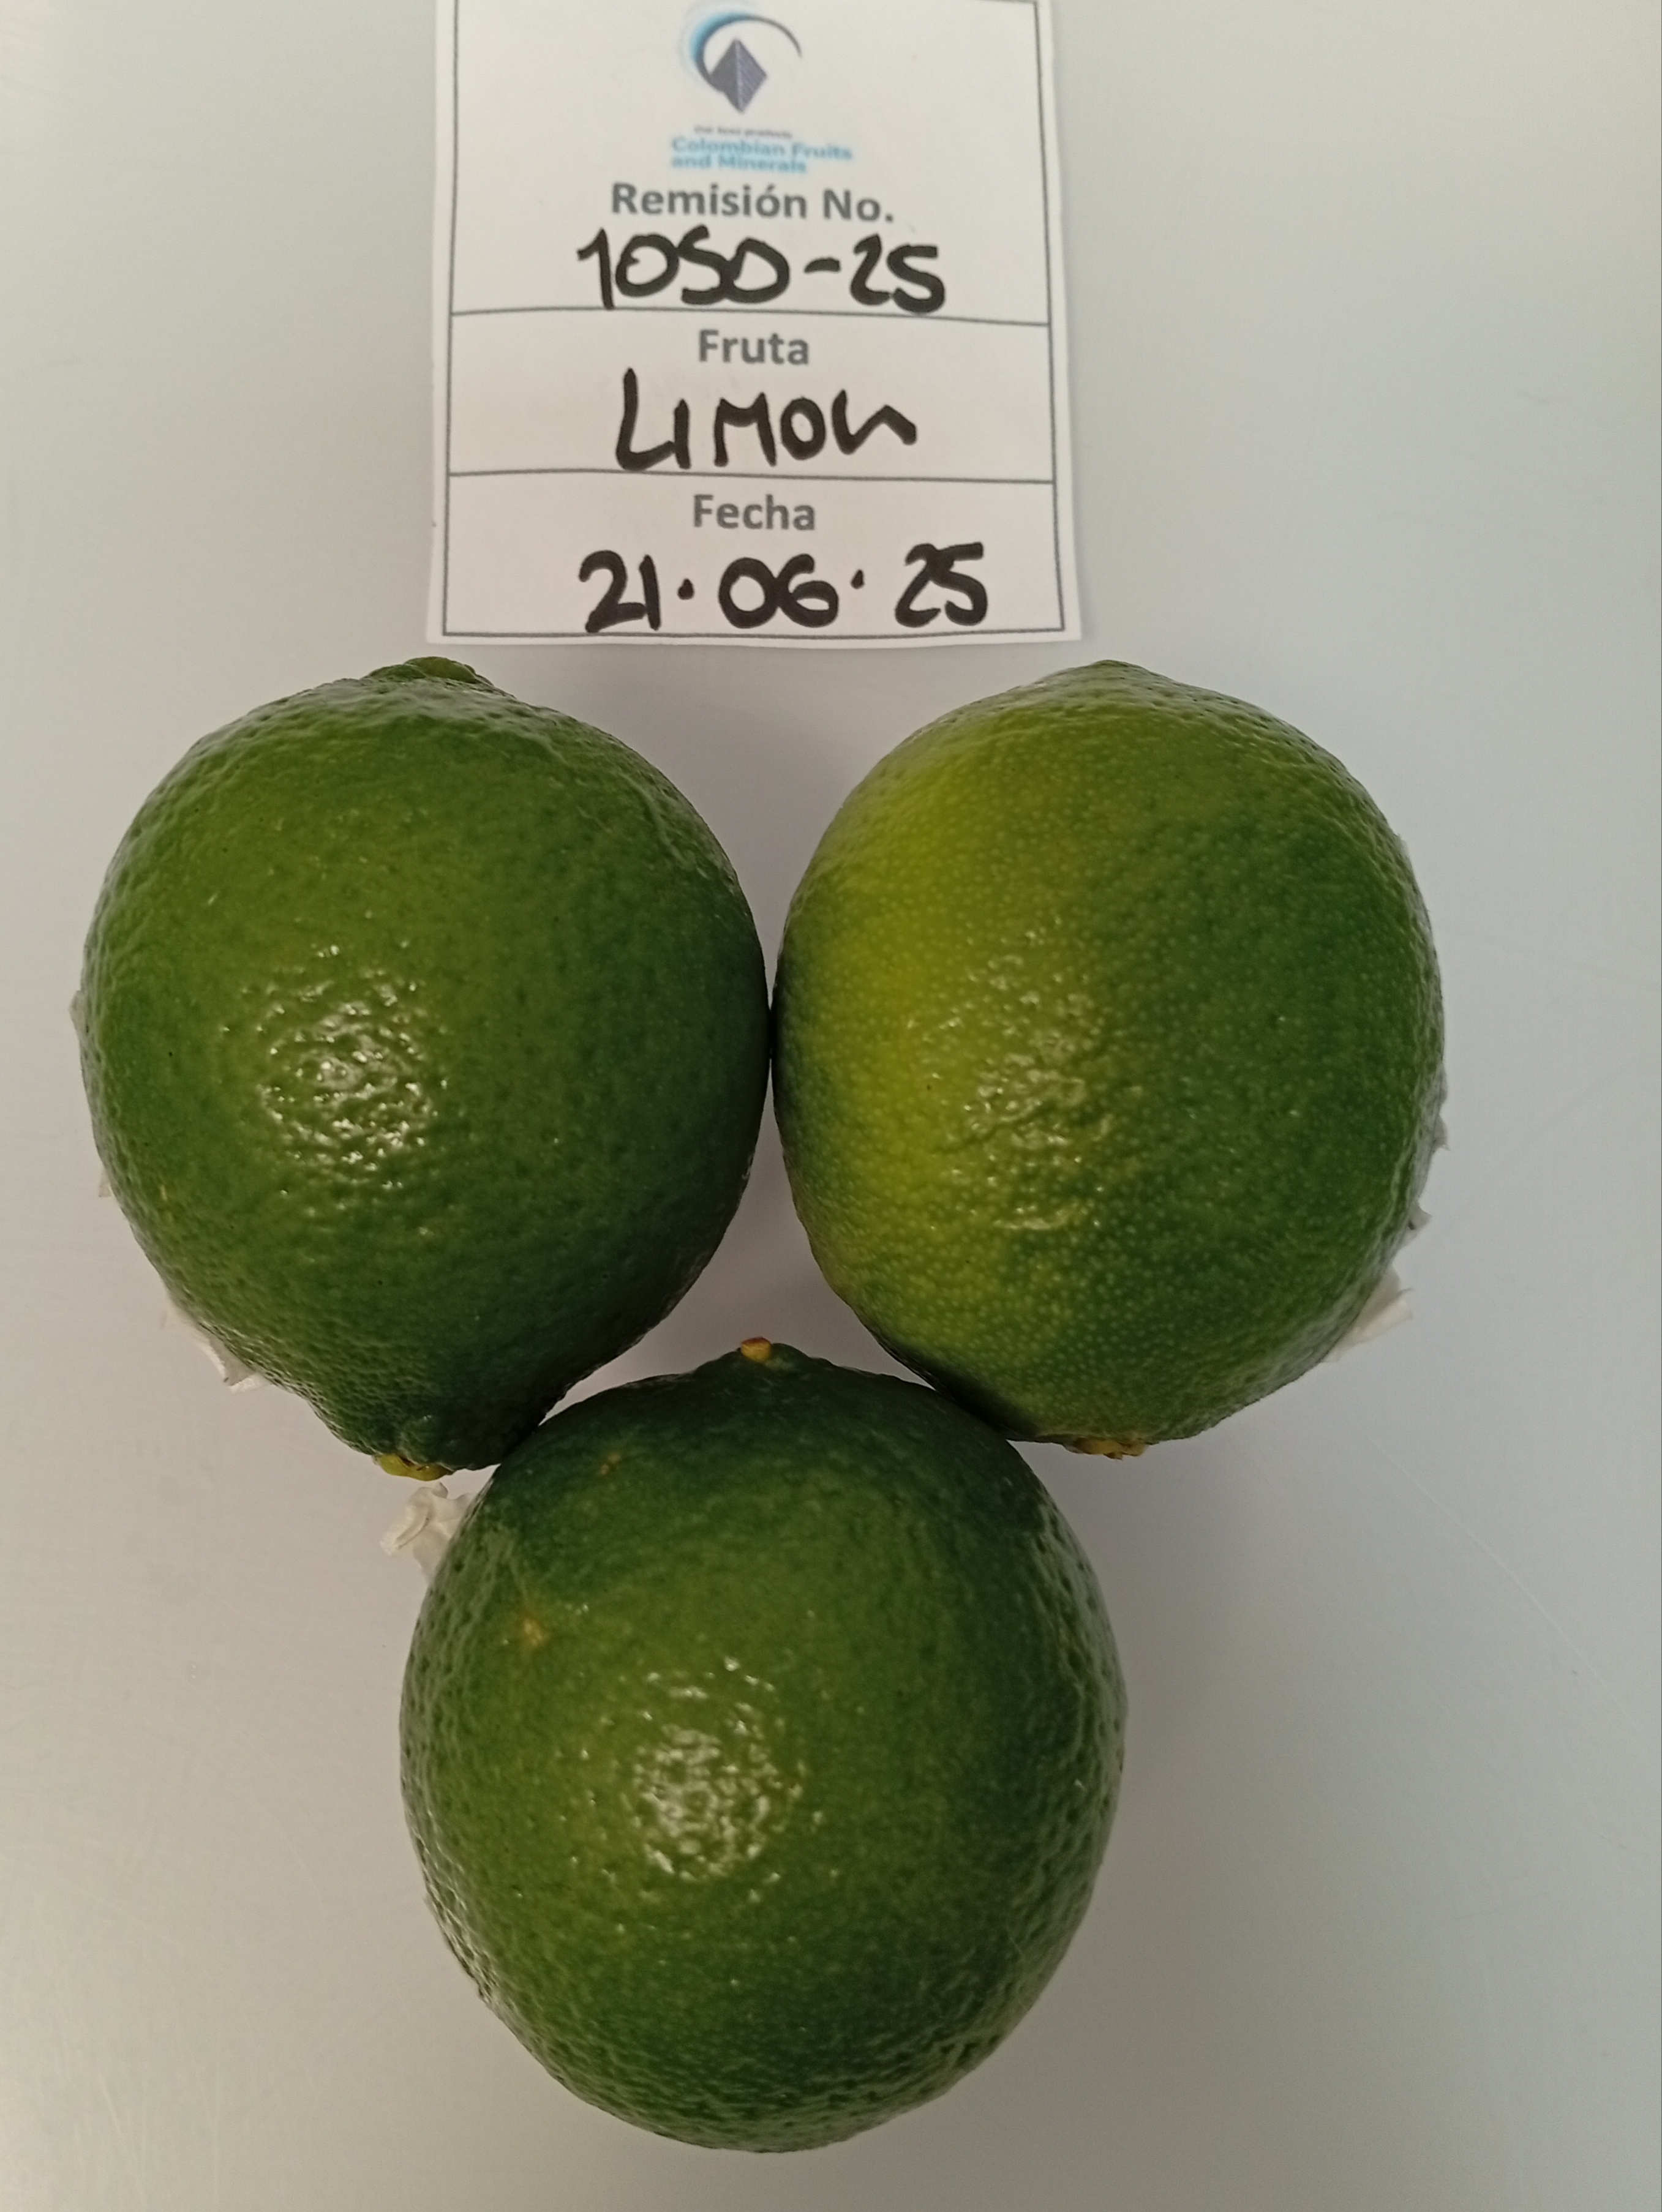 Colombian Fruits
and Minerals
Remisión No.
1050-25
Fruta
LIMON
Fecha
21.06.25